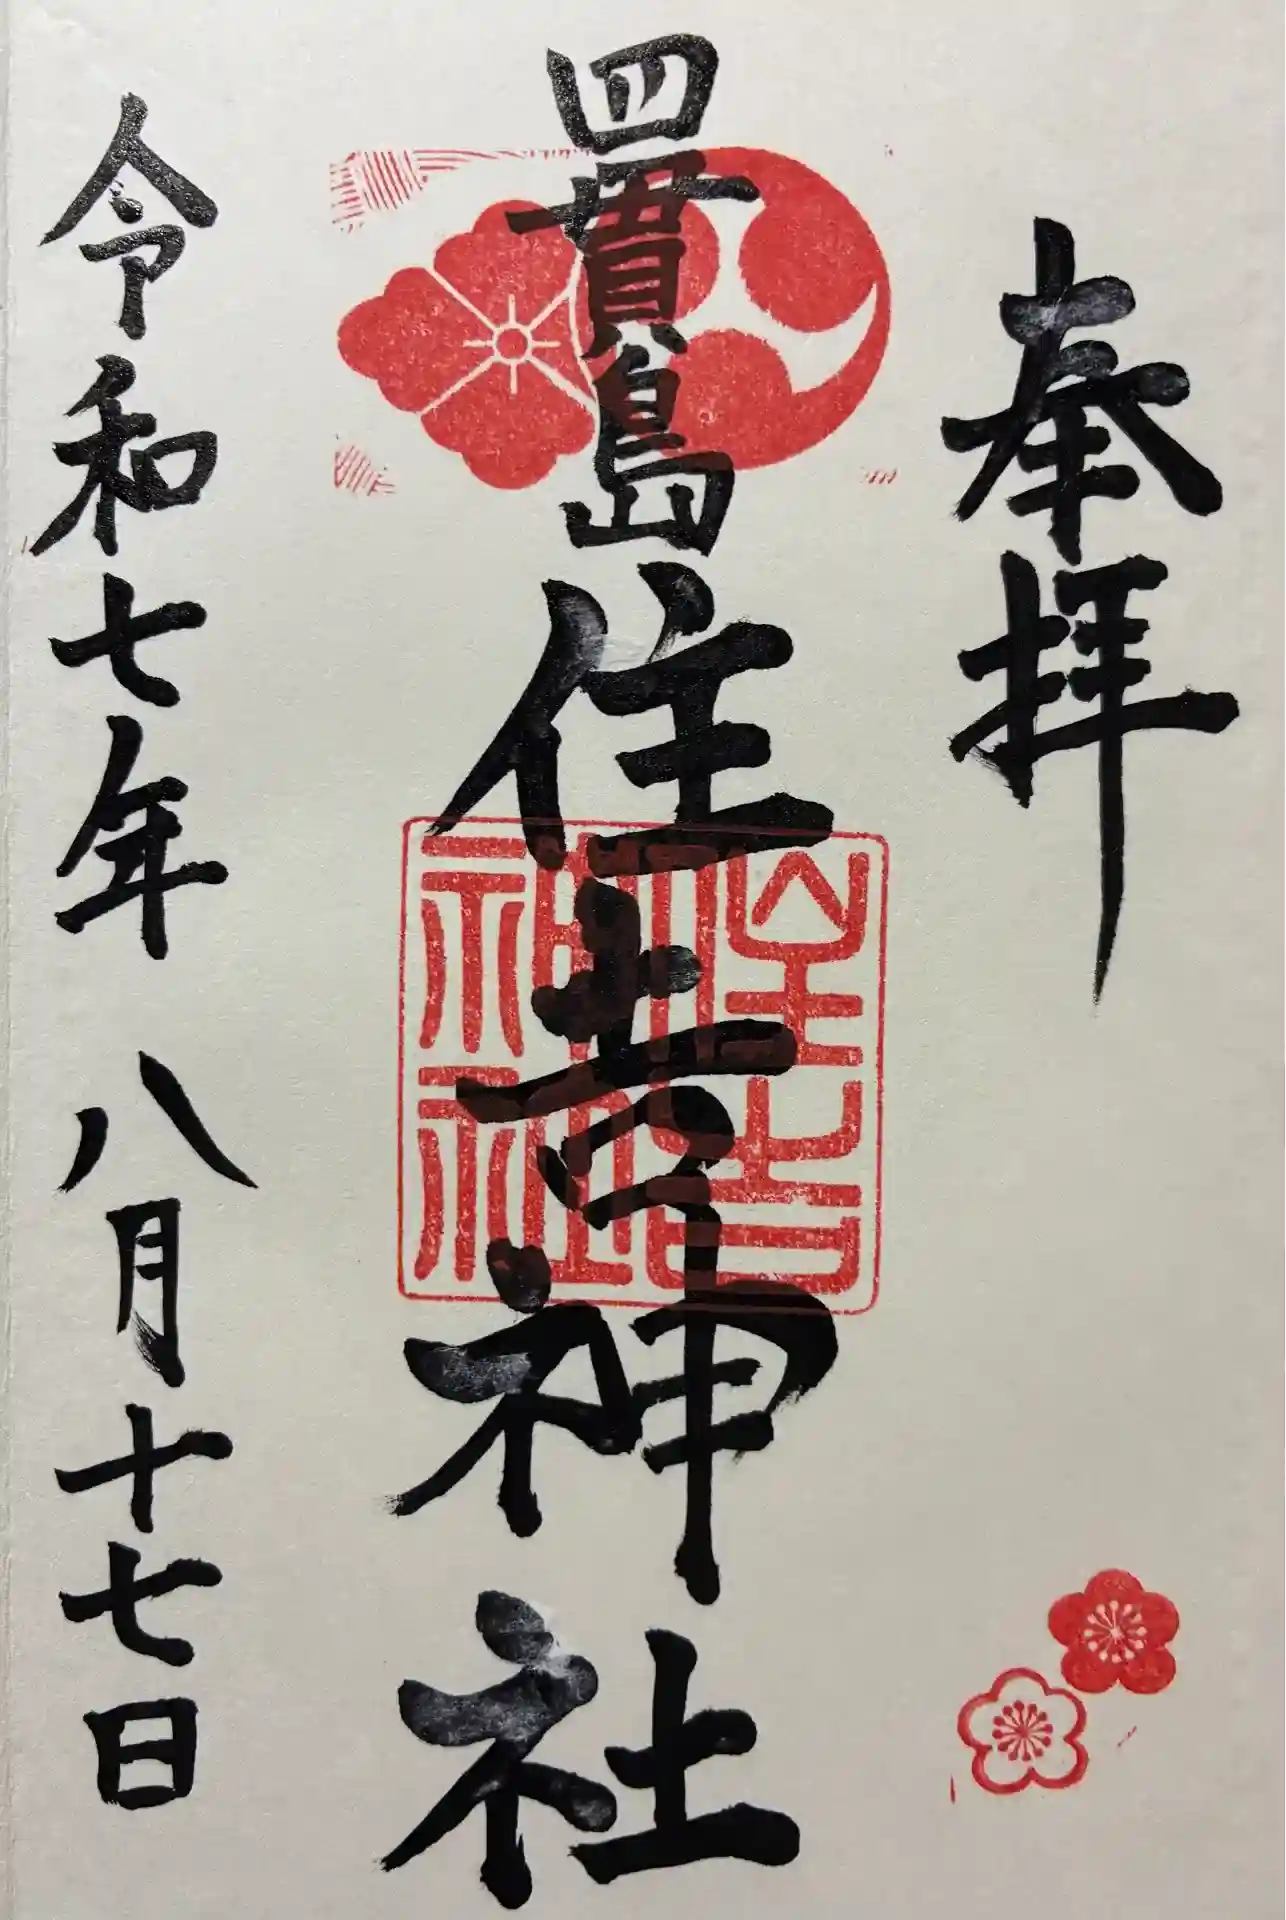 奉拝
四貫島住吉神社
住吉神社
令和七年八月十七日